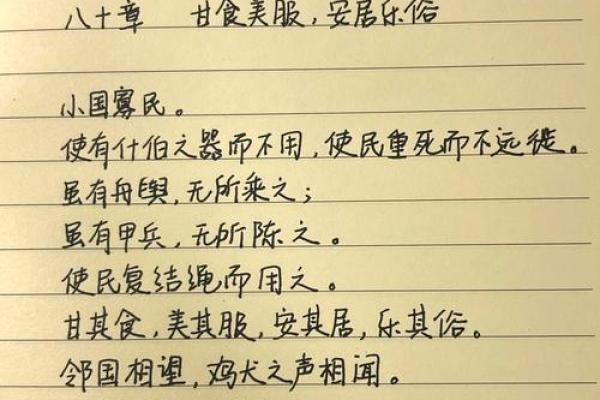 八十章 甘食美服，安居乐俗
小国寡民。
使有什伯之器而不用，使民重死而不远徙。
虽有舟舆，无所乘之；
虽有甲兵，无所陈之。
使民复结绳而用之。
甘其食，美其服，安其居，乐其俗。
邻国相望，鸡犬之声相闻。